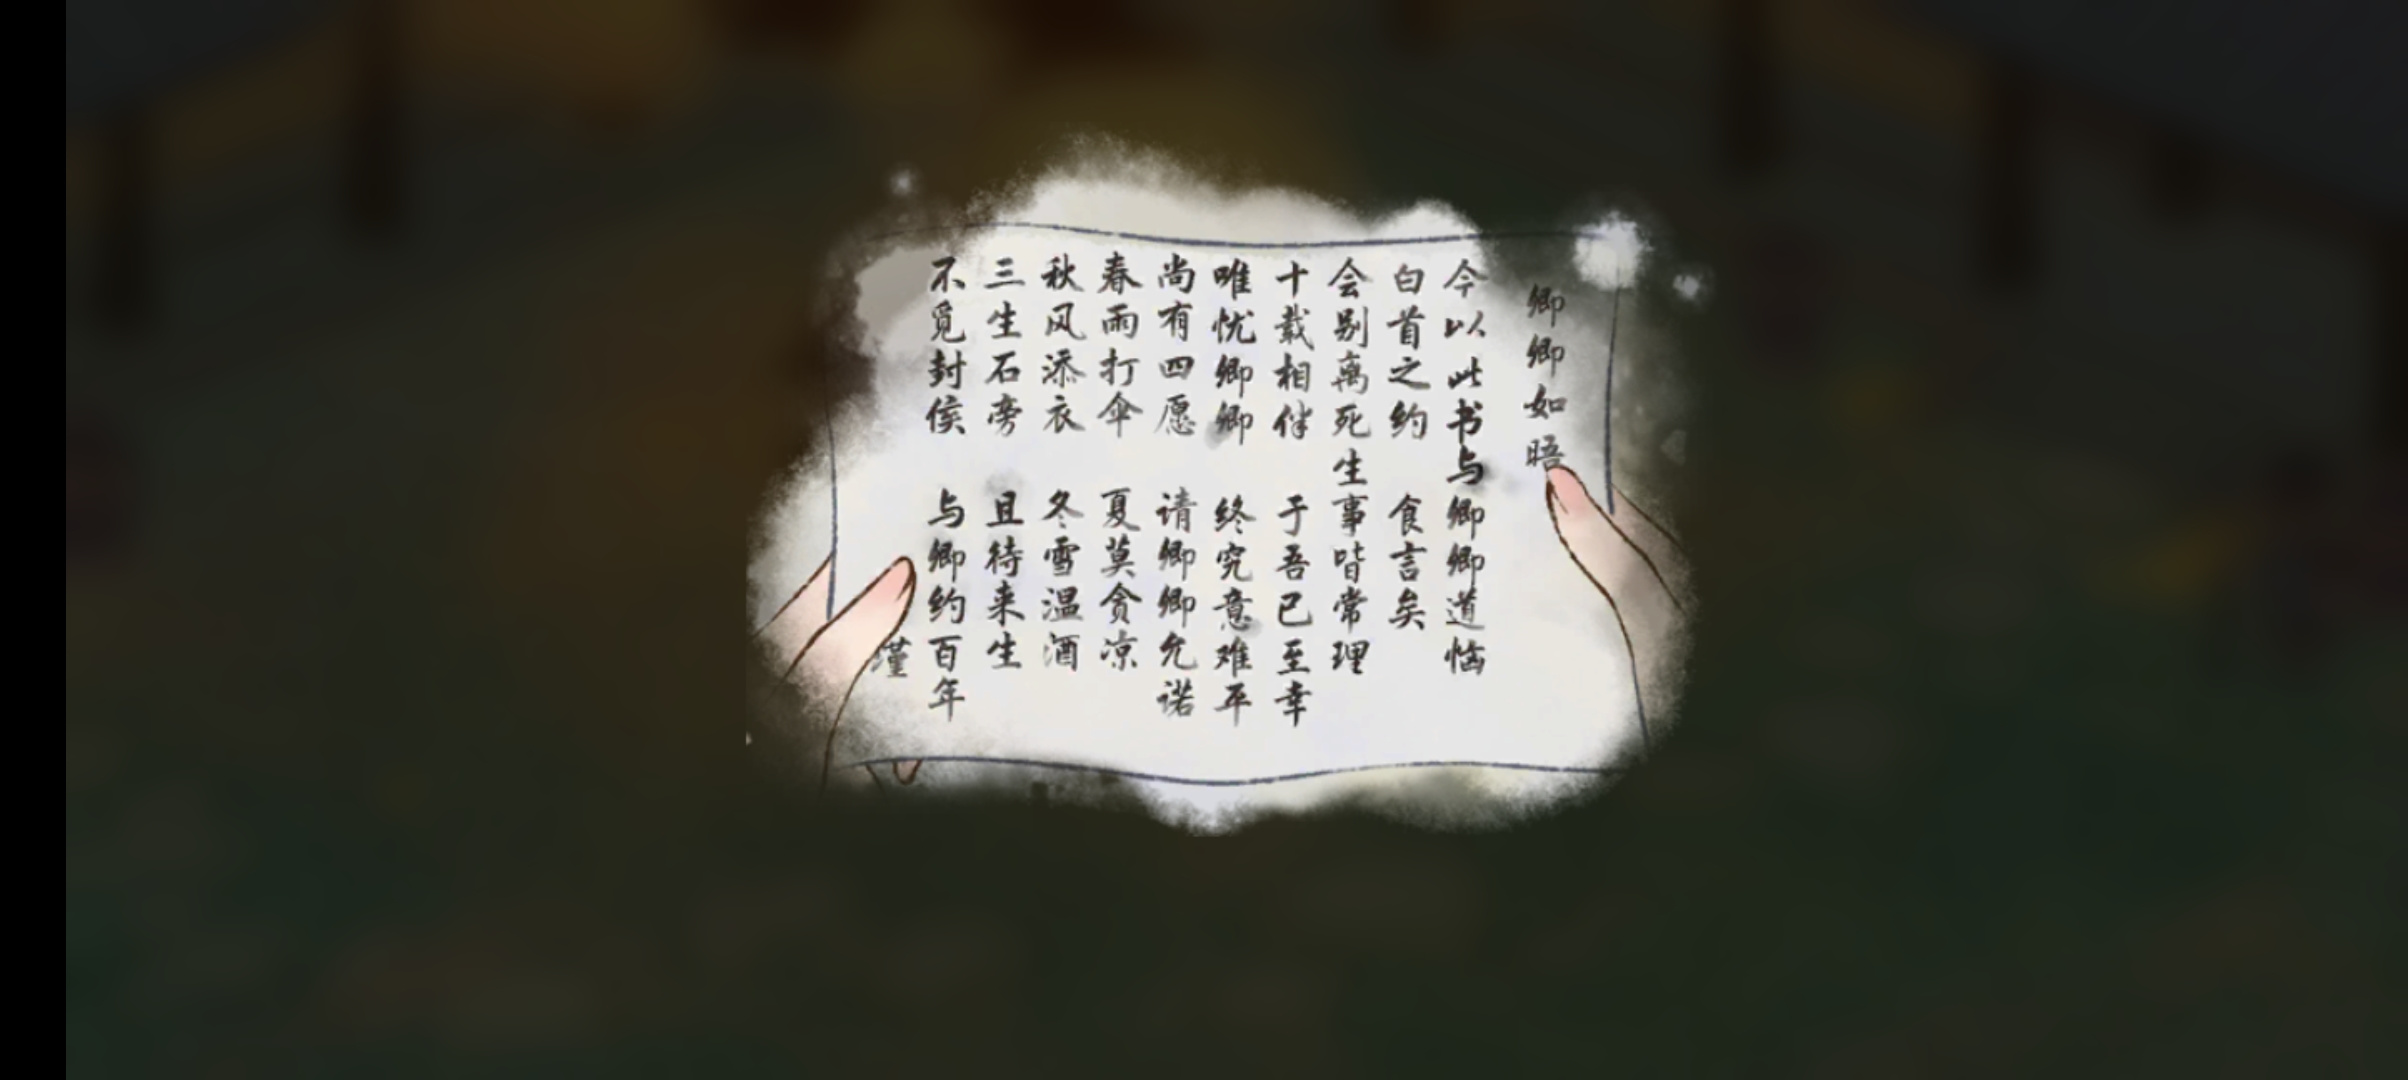 卿卿如晤
今以此书与卿卿道恼
白首之约 食言矣
会别离死生事皆常理
十载相伴 于吾已至幸
唯忧卿卿 终究意难平
尚有四愿 请卿卿允诺
春雨打伞 夏莫贪凉
秋风添衣 冬雪温酒
三生石旁 且待来生
不觅封侯 与卿约百年
瑾